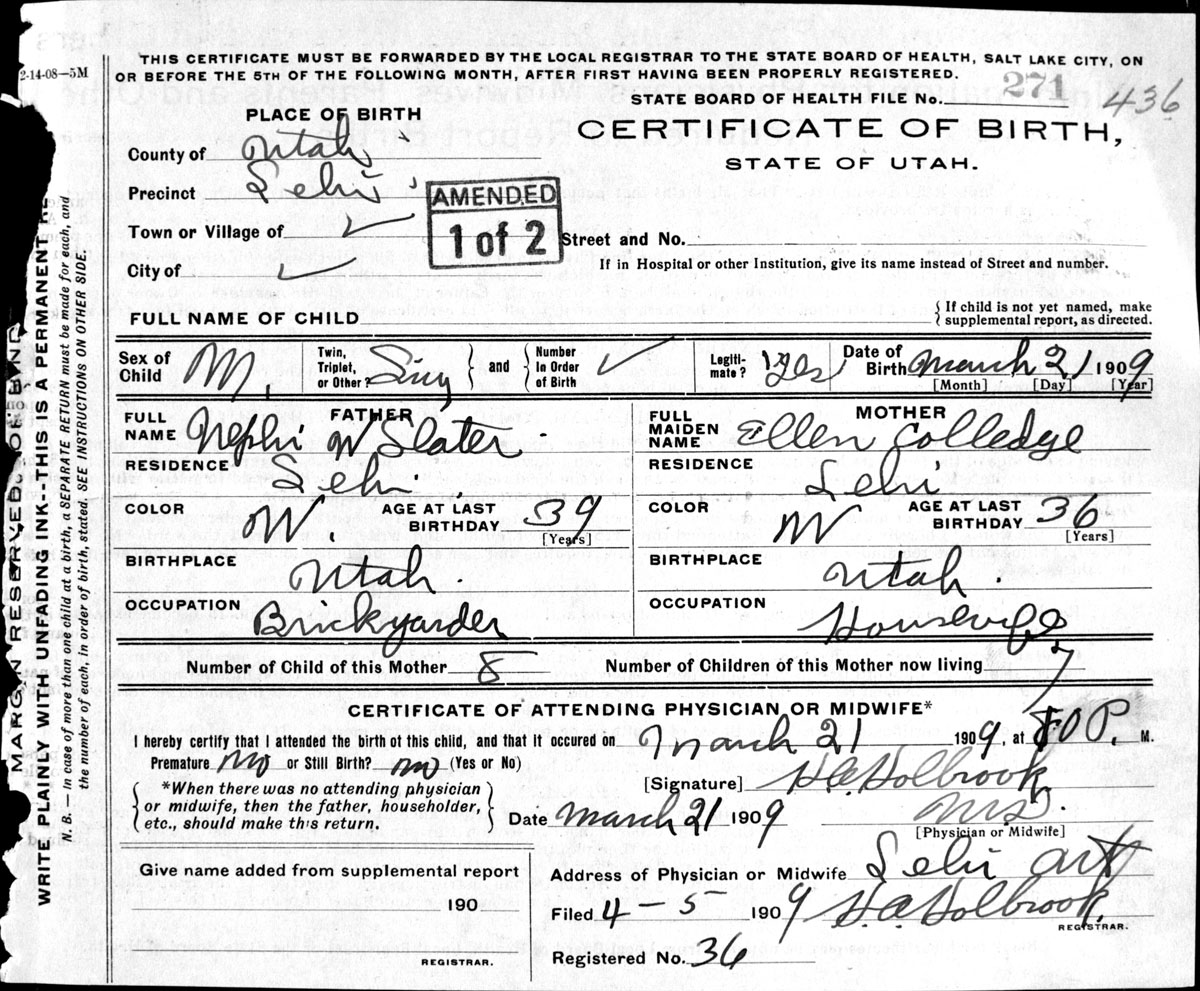 2-14-08—5M
THIS CERTIFICATE MUST BE FORWARDED BY THE LOCAL REGISTRAR TO THE STATE BOARD OF HEALTH, SALT LAKE CITY, ON
OR BEFORE THE 5TH OF THE FOLLOWING MONTH, AFTER FIRST HAVING BEEN PROPERLY REGISTERED.
STATE BOARD OF HEALTH FILE No. 271 436
PLACE OF BIRTH
CERTIFICATE OF BIRTH,
STATE OF UTAH.
County of Utah
Precinct Lehi
AMENDED
1 of 2
Town or Village of ✓
Street and No.
City of ✓
If in Hospital or other Institution, give its name instead of Street and number.
FULL NAME OF CHILD
{ If child is not yet named, make
supplemental report, as directed.
Sex of Child M. Twin, Triplet, or Other? Sing } and { Number In Order of Birth ✓ Legitimate? yes Date of Birth March 21 1909
[Month] [Day] [Year]
FATHER
FULL NAME Nephi W Slater
RESIDENCE Lehi.
COLOR W. AGE AT LAST BIRTHDAY 39
[Years]
BIRTHPLACE Utah.
OCCUPATION Brickyarder
MOTHER
FULL MAIDEN NAME Ellen Colledge
RESIDENCE Lehi
COLOR W AGE AT LAST BIRTHDAY 36
[Years]
BIRTHPLACE Utah.
OCCUPATION Housewife
Number of Child of this Mother 8 Number of Children of this Mother now living 7
CERTIFICATE OF ATTENDING PHYSICIAN OR MIDWIFE*
I hereby certify that I attended the birth of this child, and that it occured on March 21 1909, at P. M.
Premature No or Still Birth? no (Yes or No)
[Signature] H.A. Holbrook
*When there was no attending physician
or midwife, then the father, householder,
etc., should make this return.
Date March 21 1909 MD.
[Physician or Midwife]
Give name added from supplemental report
190
REGISTRAR.
Address of Physician or Midwife Lehi
Filed 4-5 1909 H.A. Holbrook.
REGISTRAR.
Registered No. 36
MARGIN RESERVED FOR BINDING
WRITE PLAINLY WITH UNFADING INK--THIS IS A PERMANENT RE
N. B.— In case of more than one child at a birth, a SEPARATE RETURN must be made for each, and
the number of each, in order of birth, stated. SEE INSTRUCTIONS ON OTHER SIDE.